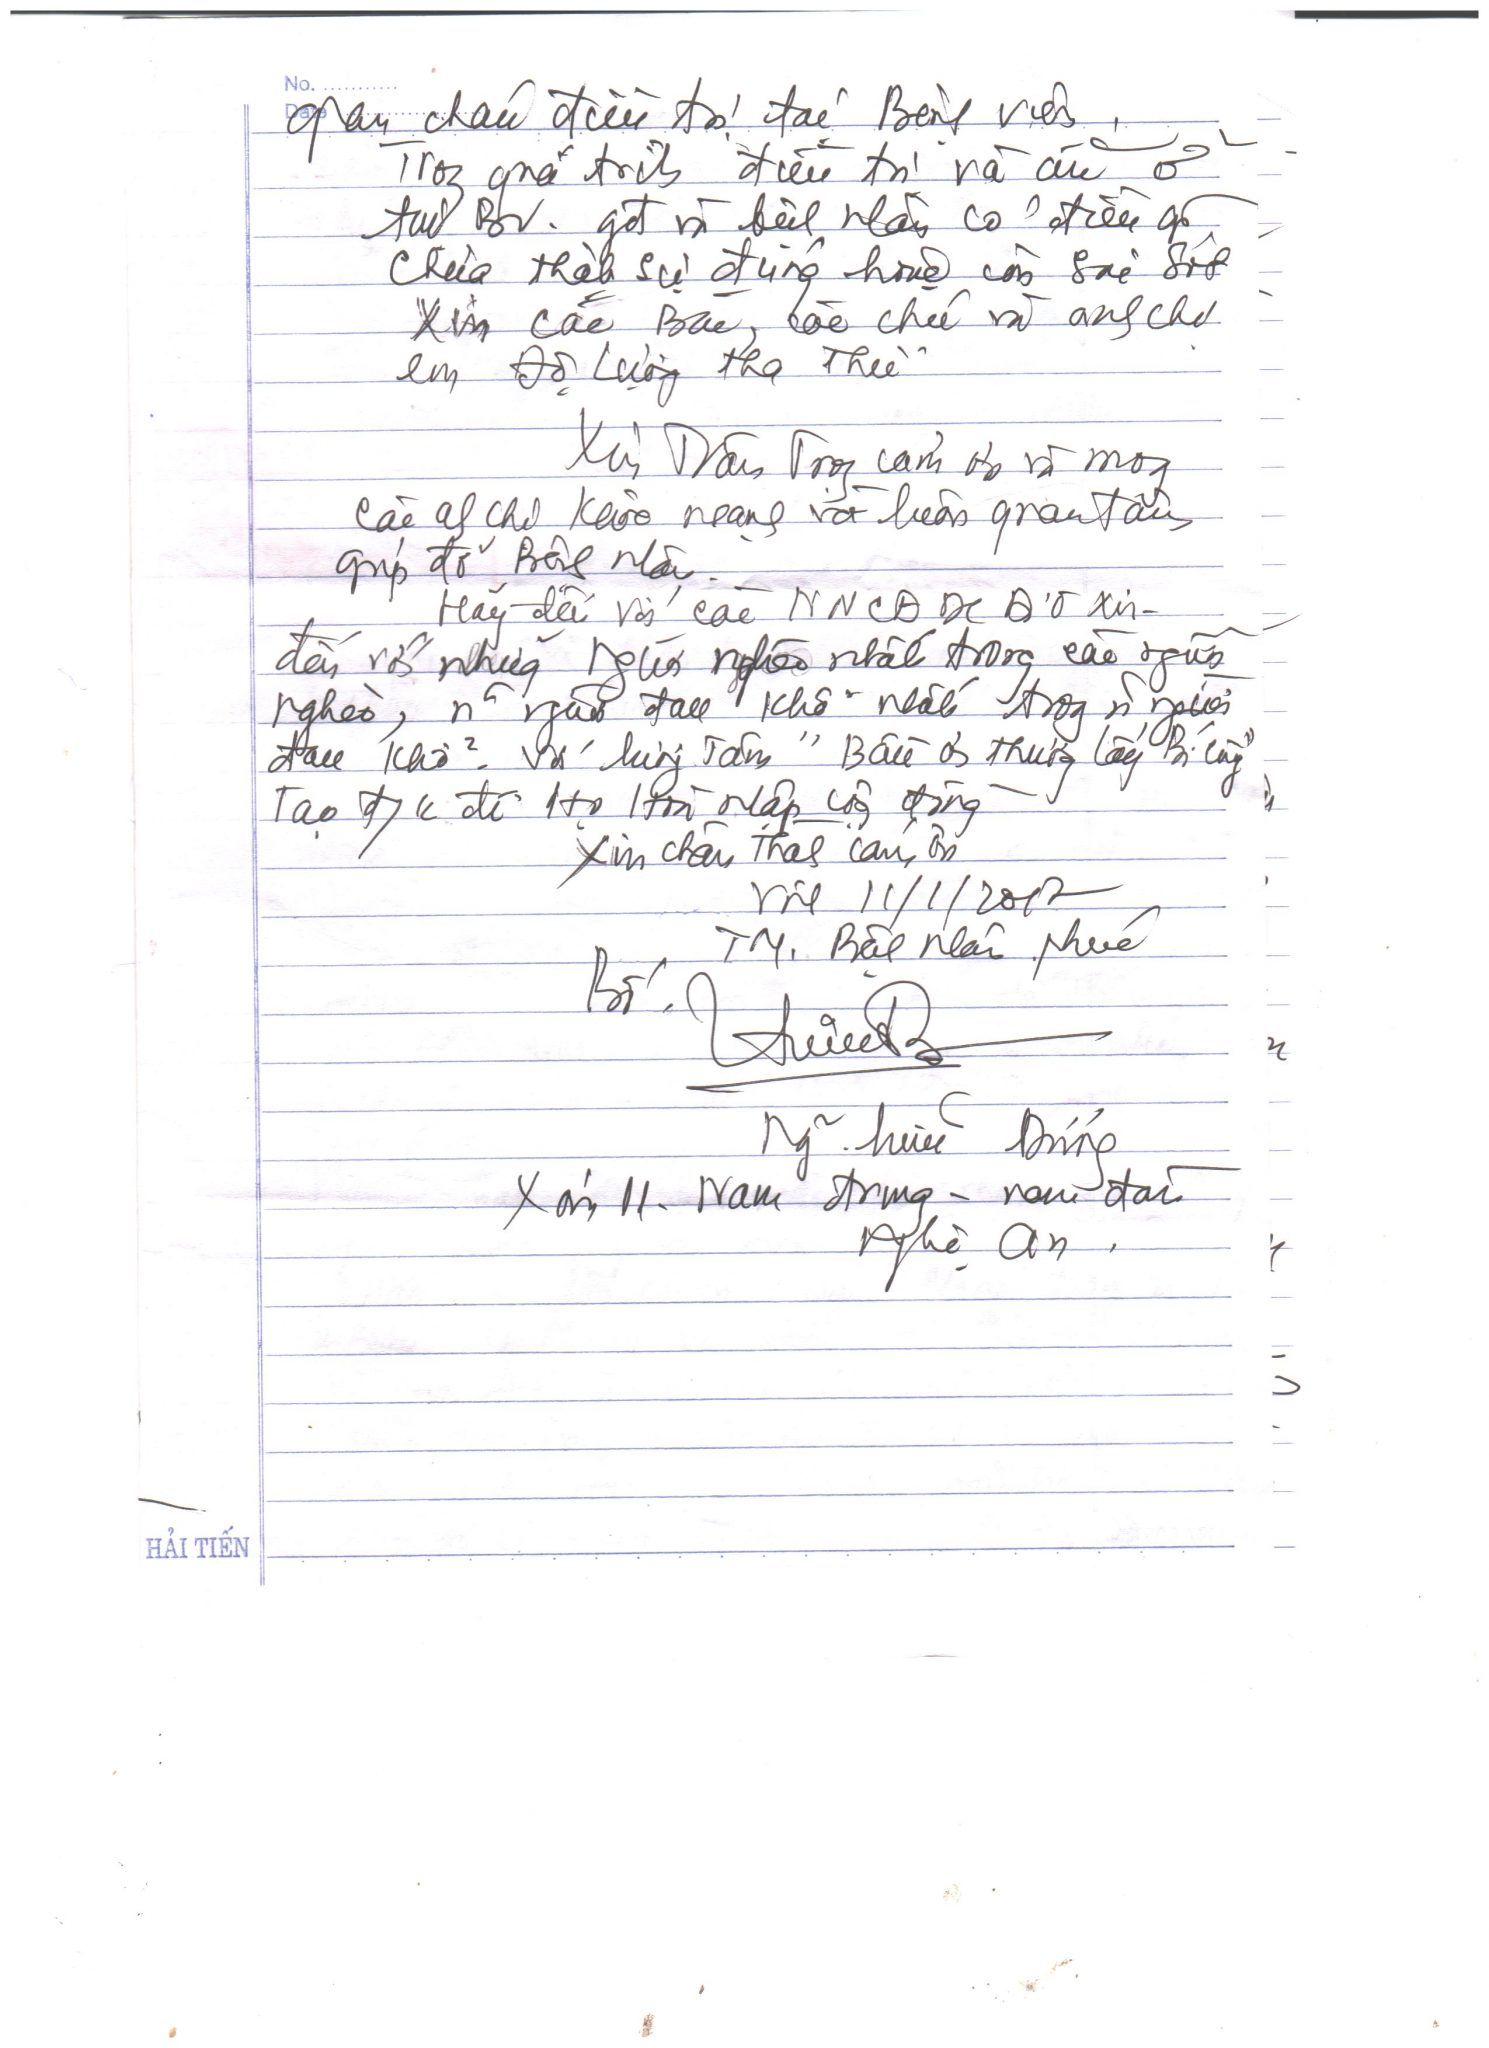 No. ............
Date
gian cháu điều trị tại Bệnh viện.
Trong quá trình điều trị và ăn ở
tại BV. gđ và bệnh nhân có điều gì
chưa thật sự đúng hoặc còn sai sót
Xin các Bác, các chú và anh chị
em Độ Lượng tha thứ
Xin Trân Trọng cảm ơn và mong
các a chị khỏe mạng và luôn quan tâm
giúp đỡ Bệnh nhân.
Hãy đến với các NNCĐDC Đ'O xin
đến với những người nghèo nhất trong các người
nghèo, n~ người đau khổ nhất trong n~ người
đau khổ. Với lương Tâm "Bầu ơi thương lấy Bí cùng"
Tạo đ/k để họ Hòa nhập cộng đồng
Xin chân Thành cảm ơn
Vinh 11/1/2017
TM. Bệnh nhân
Bố.
Ng~. hữu
Xóm 11. Nam trung - nam đàn
Nghệ An.
HẢI TIẾN